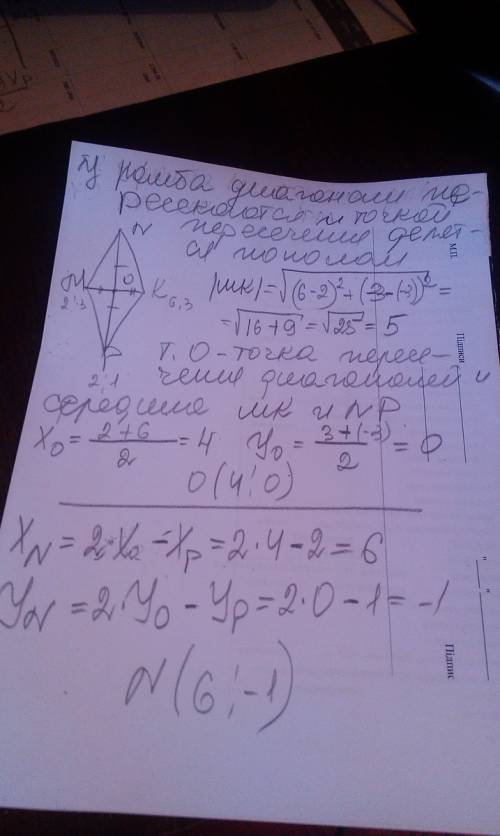 У ромба диагонали пе-
ресекаются и точкой
пересечения делят-
ся пополам
N
M
2;-3
O
K 6,3
P
2;1
|MK|=√(6-2)²+(3-(-2))² =
=√16+9=√25=5
т. О-точка пересе-
чения диагоналей и
середина МК и NP
X₀=2+6/2=4 У₀=3+(-3)/2=0
О(4;0)
X_N=2·X₀-X_P=2·4-2=6
У_N=2·У₀-У_P=2·0-1=-1
N(6;-1)
МП
Підписи
Підпис